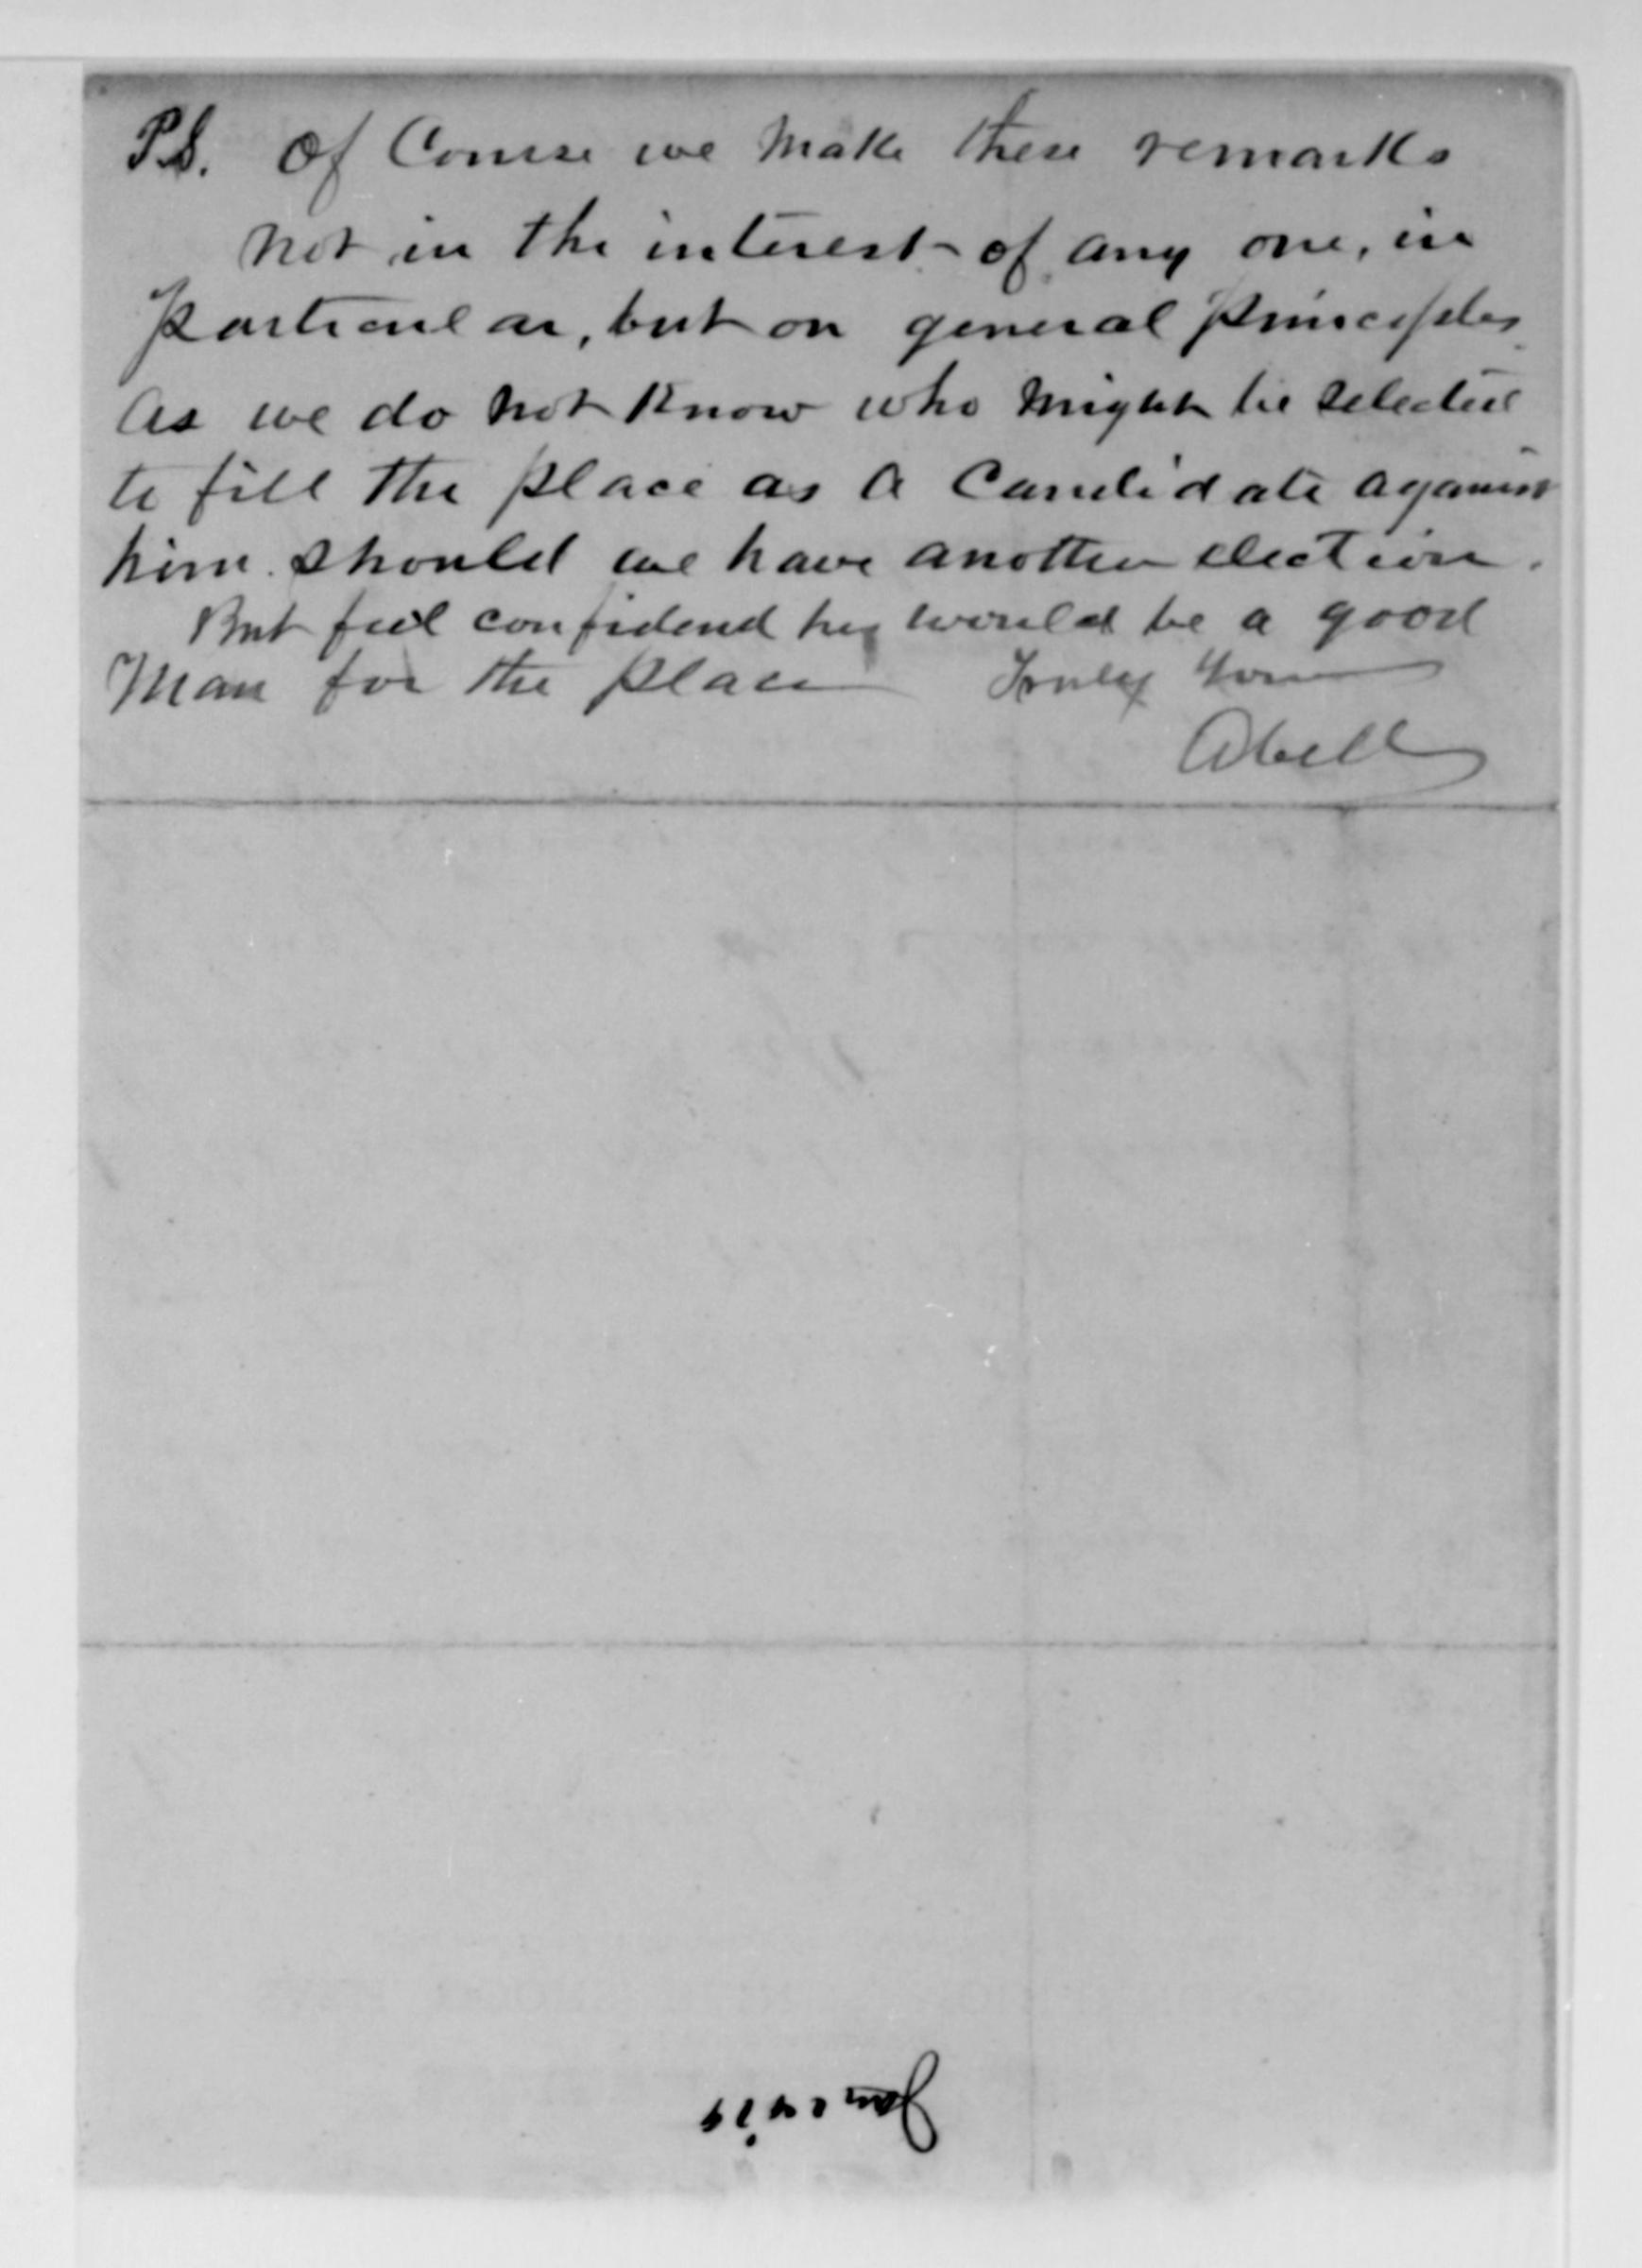 P.S. Of Course we Make these remarks
not in the interest of any one, in
particular, but on general principles
As we do not Know who Might be selected
to fill the place as a Candidate against
him should we have another election.
But feel confidend he would be a good
Man for the place Truly Yours
Abell